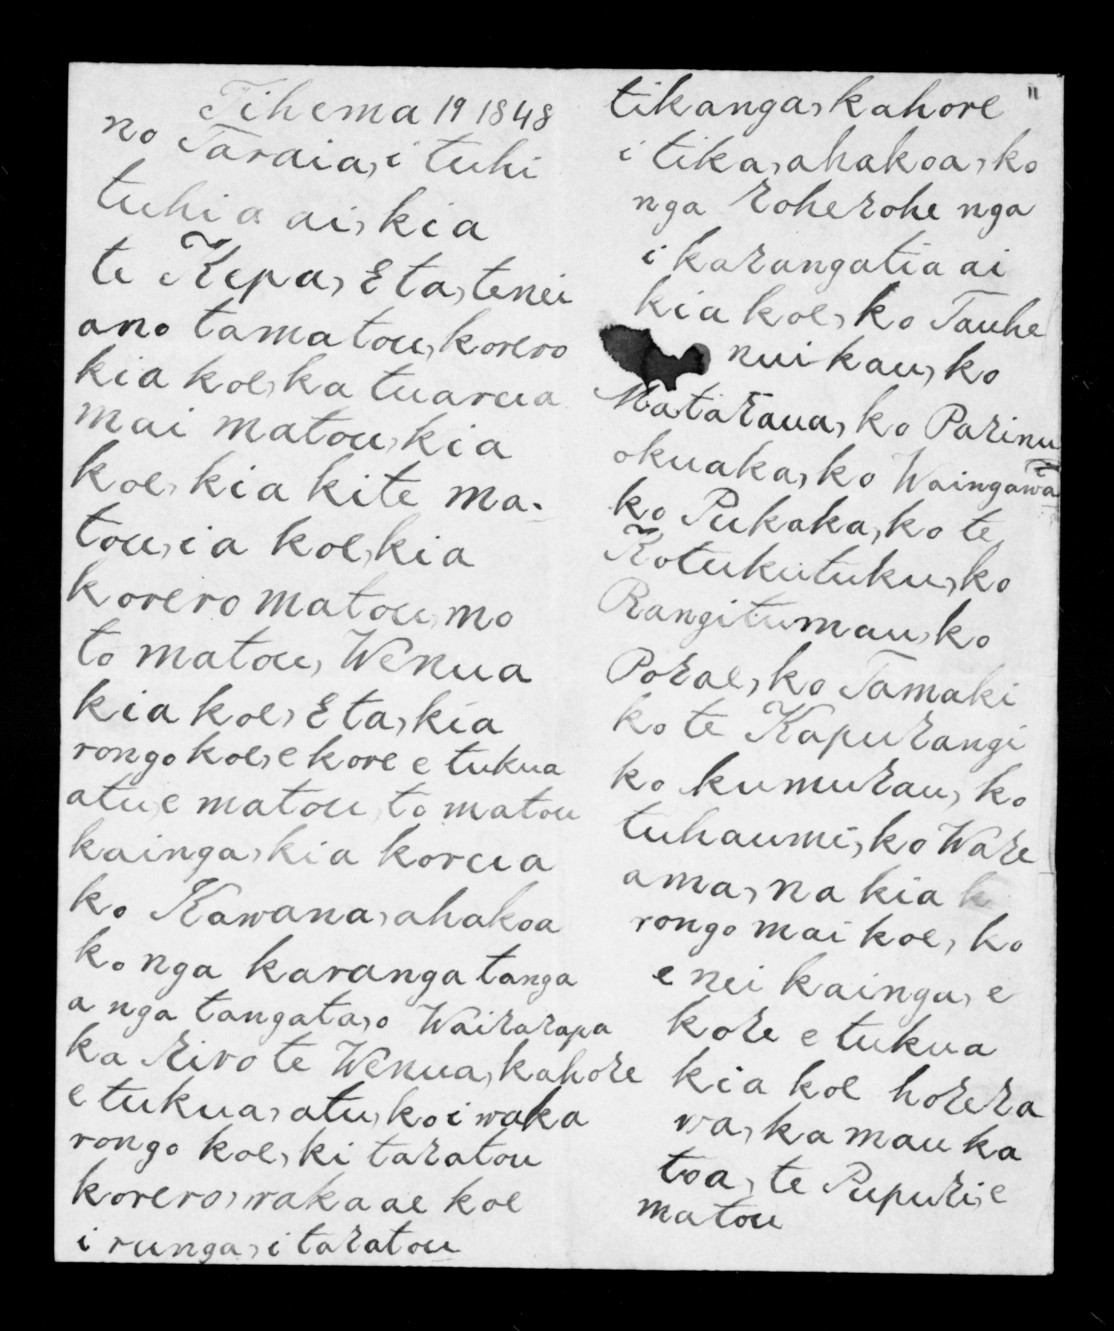 Tihema 19 1848
no Taraia, i tuhi
tuhia ai, kia
te Kepa, E ta, tenei
ano ta matou, korero
kia koe, ka tuarua
mai matou, kia
koe, kia kite ma-
tou, i a koe, kia
korero matou, mo
to matou, Wenua
kia koe, E ta, kia
rongo koe, e kore e tukua
atu, e matou, to matou
kainga, kia korua
ko Kawana, ahakoa
ko nga karanga tanga
a nga tangata, o Wairarapa
ka riro te Wenua, kahore
e tukua, atu, ko i waka
rongo koe, ki taratou
korero, waka ae koe
i runga, i taratou
11
tikanga, kahore
i tika, ahakoa, ko
nga roherohe nga
i karangatia ai
kia koe, ko Tauhe
nui kau, ko
Mataraua, ko Parinu
okuaka, ko Waingawa
ko Pukaka, ko te
Kotukutuku, ko
Rangitumau, ko
Porae, ko Tamaki
ko te Kapurangi
ko kumurau, ko
tuhaumi, ko Ware
ama, na kia k
rongo mai koe, ko
e nei kainga, e
kore e tukua
kia koe horera
wa, ka mau ka
toa, te Pupuri, e
matou